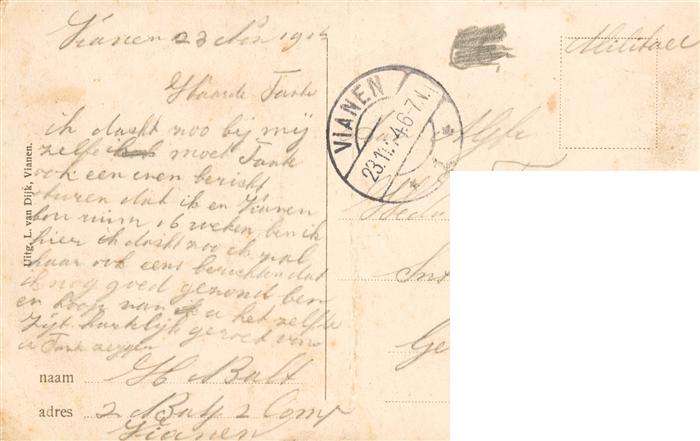 Vianen 23 Nov 1914
Waarde Tante
ik dacht zoo bij mij
zelfe moet Tante
ook een even bericht
sturen dat ik en Vianen
ben ruim 16 weken ben ik
hier ik dacht zoo ik zal
haar ook eens berichten dat
ik nog goed gezond ben
en hoop van u het zelfde
zijt hartelijk gegroet van
u
naam H Balt
adres 2 Batj 2 Comp
Vianen
Uitg. L. van Dijk, Vianen.
VIANEN
23.11.14.6-7.V.
1
Militair